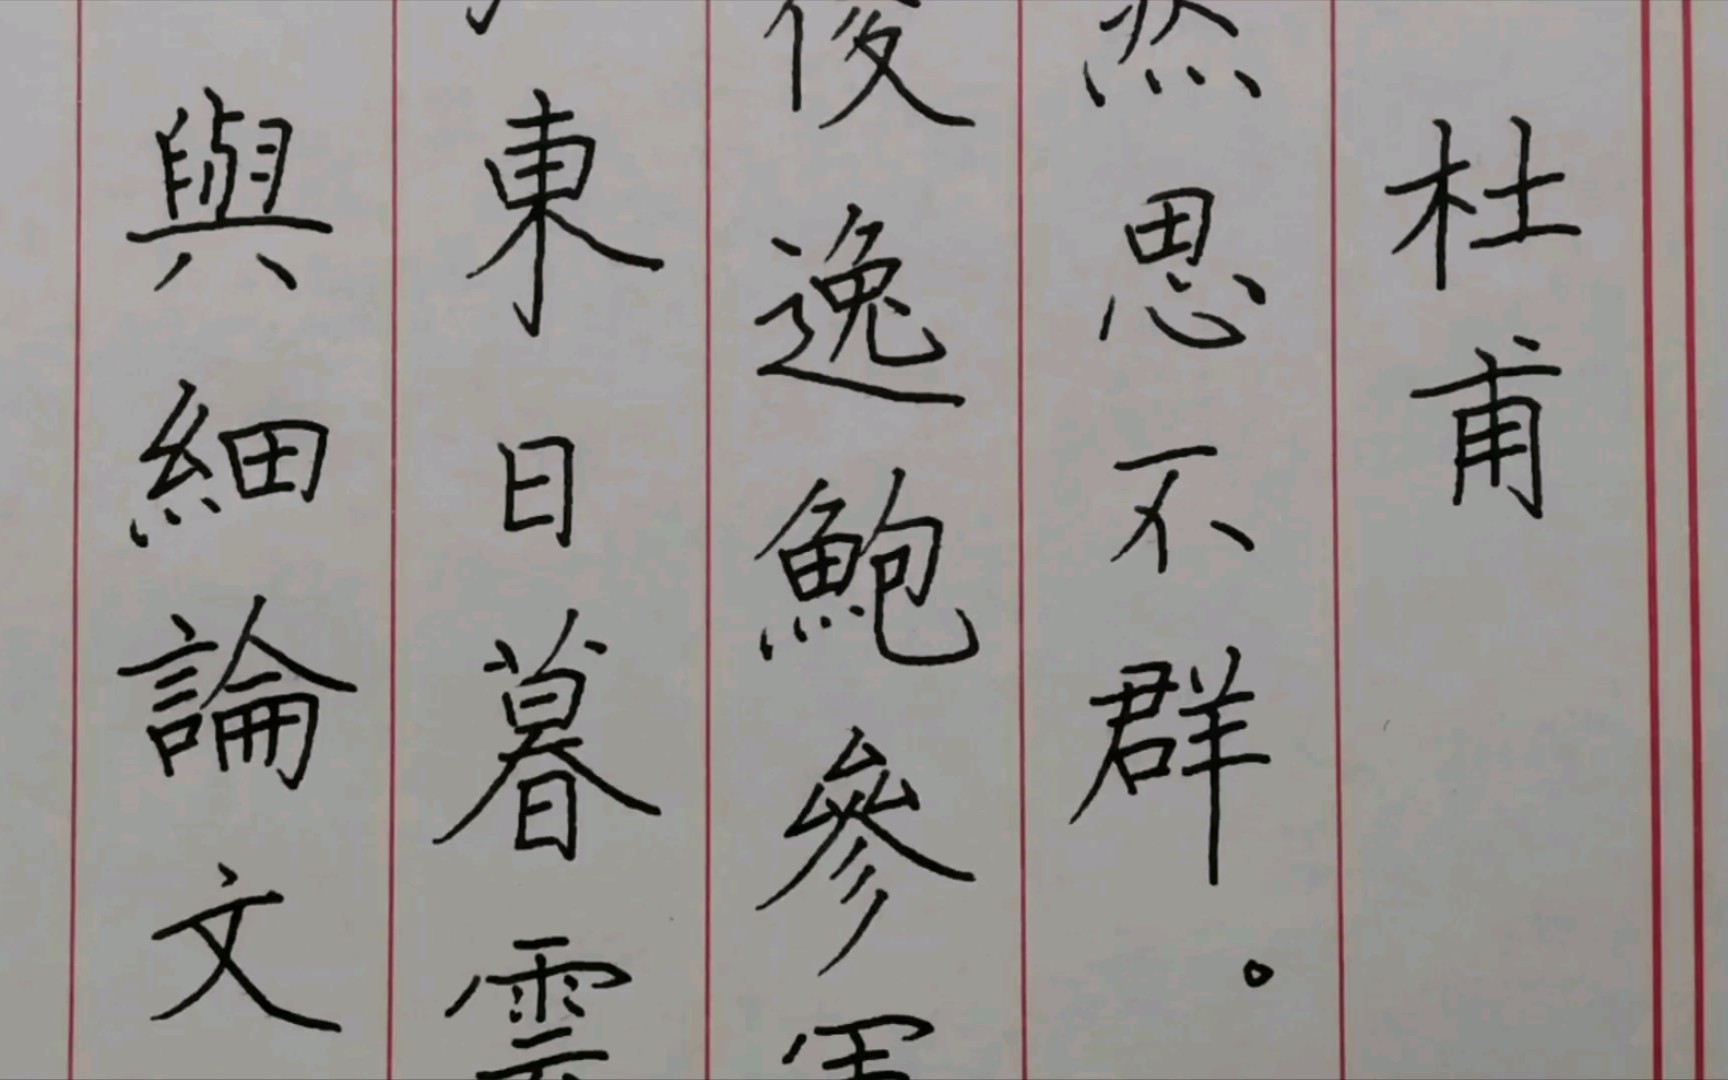 杜甫
然思不群。
俊逸鮑參軍
東日暮雲
與細論文